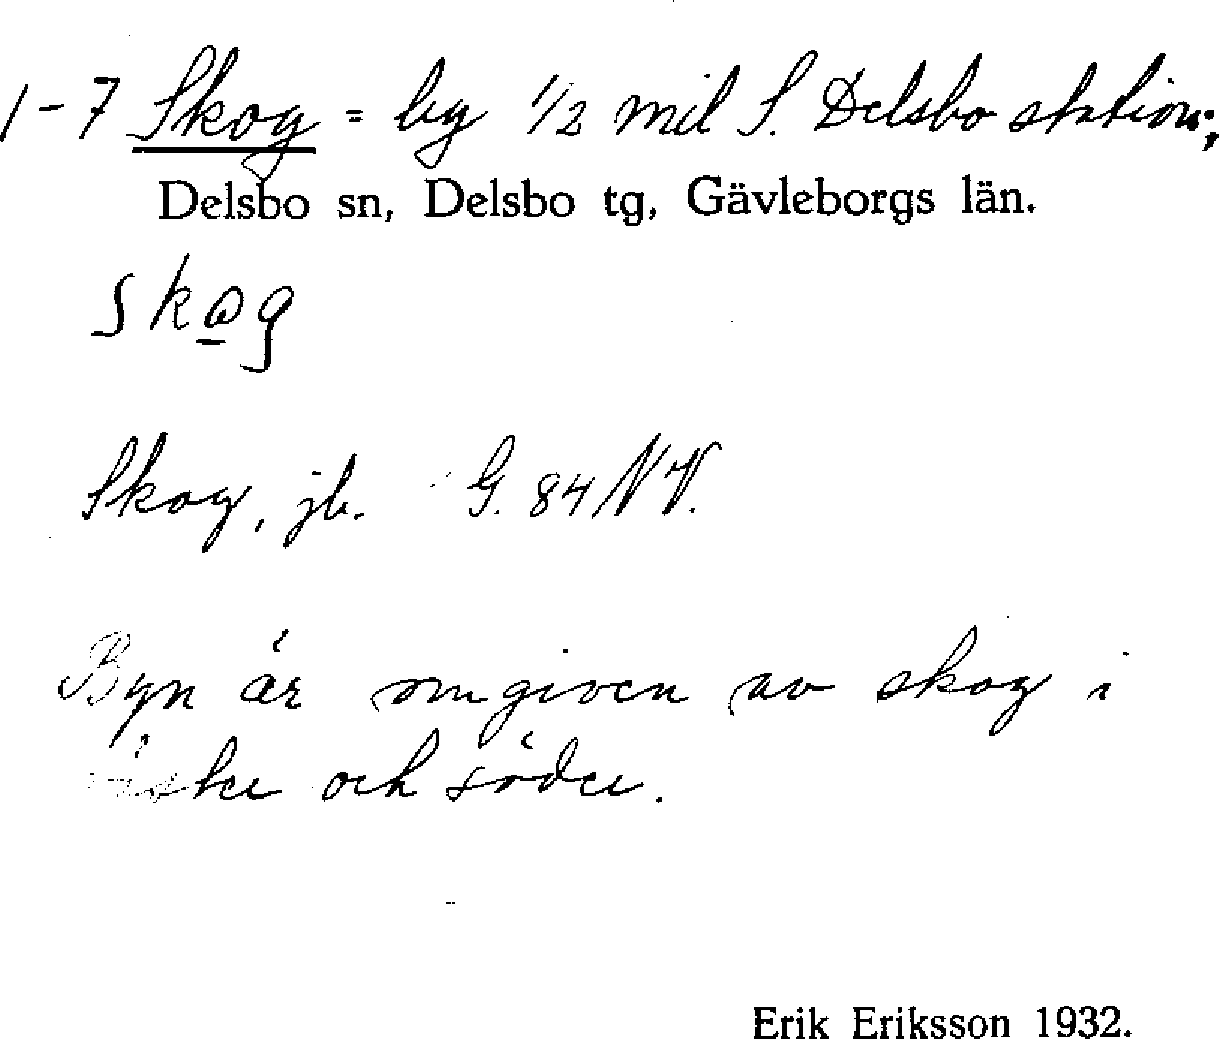 1-7 Skog = by 1/2 mil S. Delsbo station;
Delsbo sn, Delsbo tg, Gävleborgs län.
skog
Skog, jb. G. 84 NV.
Byn är omgiven av skog i
väster och söder.
Erik Eriksson 1932.